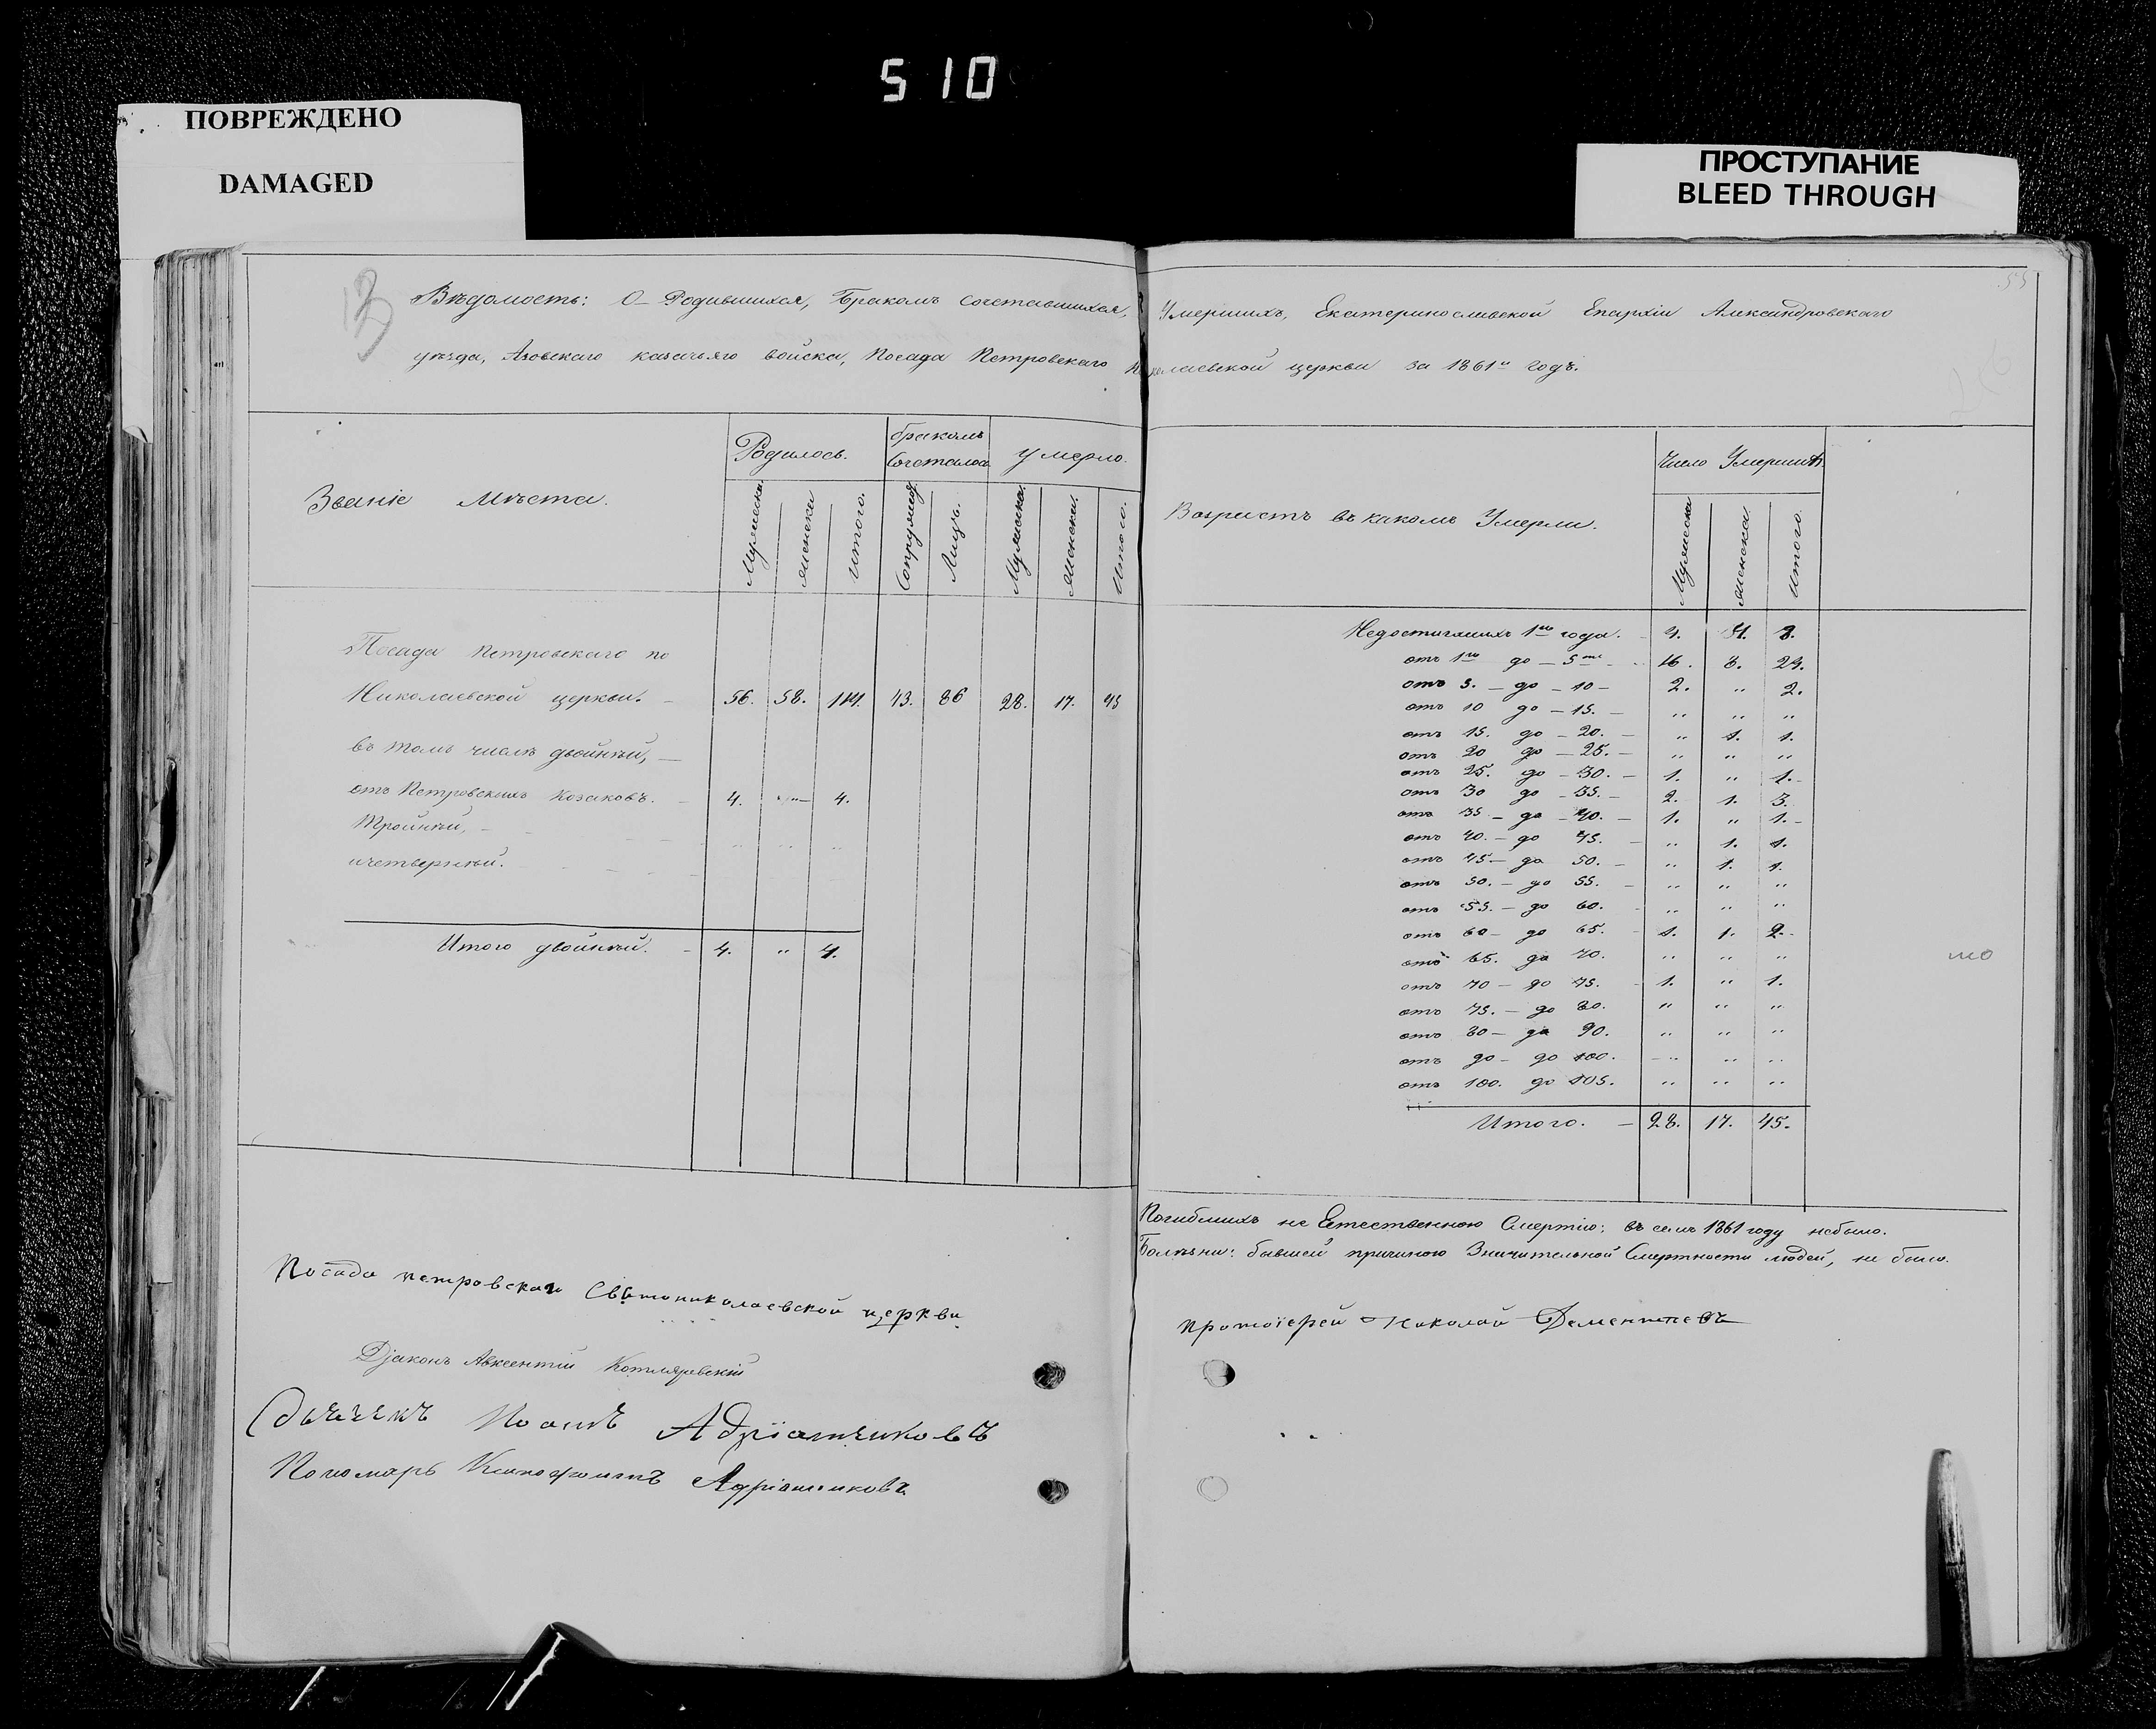 510
ПОВРЕЖДЕНО
DAMAGED
ПРОСТУПАНИЕ
BLEED THROUGH
Вѣдомость: О Родившихся, Бракомъ Сочетавшихся, Умершихъ, Екатеринославской Епархіи Александровскаго
уѣзда, Азовскаго казачьяго войска, Посада Петровскаго Николаевской церкви за 1861й годъ.
Званіе Мѣста.
Родилось. бракомъ Сочеталось умерло.
Мужеска женска итого. Супружес. Лицъ. Мужеска женска. итого.
Посада Петровскаго по
Николаевской церкви. – 56. 58. 114. 43. 86 28. 17. 45
въ томъ числѣ двойней, –
отъ Петровскихъ Козаковъ. – 4. „ – 4.
Тройней, – „ „ „
ичетверней.
Итого двойней. – 4. „ 4.
Посада петровскаго Святониколаевской церкви
Діаконъ Авксентій Котляревскій
Іоаннъ Адріанчиковъ
Пономарь Ксенофонтъ Адріанчиковъ
55
Возрастъ въ какомъ Умерли.
Число Умершихъ
Мужеска женска. итого.
Недостигшихъ 1го года. – 4. 4. 8.
отъ 1го до – 5ти – 16. 8. 24.
отъ 5. – до – 10 – 2. „ 2.
отъ 10 до – 15. – „ „ „
отъ 15. до – 20. – „ 1. 1.
отъ 20 до – 25. – „ „ „
отъ 25. до – 30. – 1. „ 1. –
отъ 30 до – 35. – 2. 1. 3.
отъ 35 – до – 40. – 1. „ 1. –
отъ 40. – до 45. – „ 1. 1.
отъ 45 – до 50. – „ 1. 1.
отъ 50. – до 55. – „ „ „
отъ 55. – до 60. – „ „ „
отъ 60 – до 65. – 1. 1. 2. –
отъ 65. до 70. „ „ „
отъ 70 – до 75. – 1. „ 1.
отъ 75. – до 80. „ „ „
отъ 80 – до 90. „ „ „
отъ 90 – до 100. – „ „ „
отъ 100. до 105. „ „ „
Итого. – 28. 17. 45.
Погибшихъ не Естественною Смертію: въ семъ 1861 году небыло.
Болѣзни: бывшей причиною Значительной Смертности людей, не было.
протоіерей Николай Дементьевъ